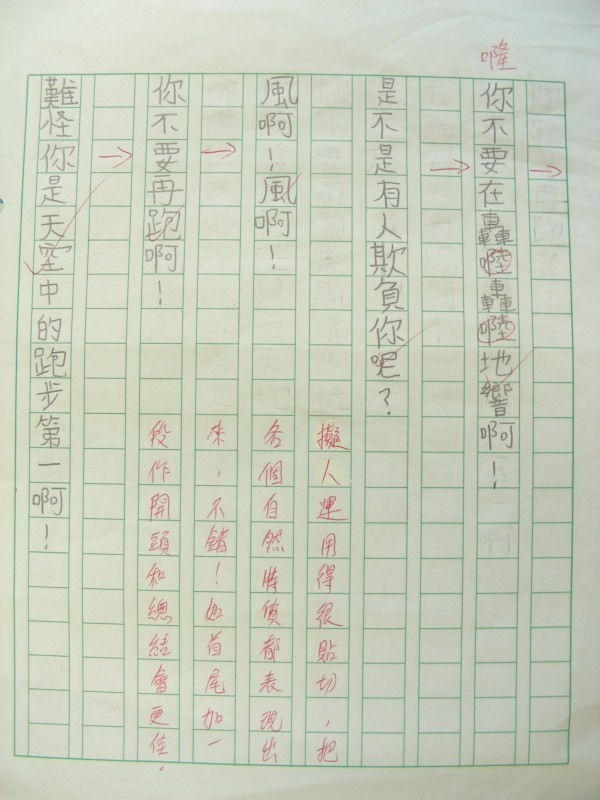 你不要在轟轟地響啊！
是不是有人欺負你呢？
風啊！風啊！
你不要再跑啊！
難怪你是天空中的跑步第一啊！
擬人運用得很貼切，把
各個自然特質都表現出
來，不錯！如首尾加一
段作開頭和總結會更佳。